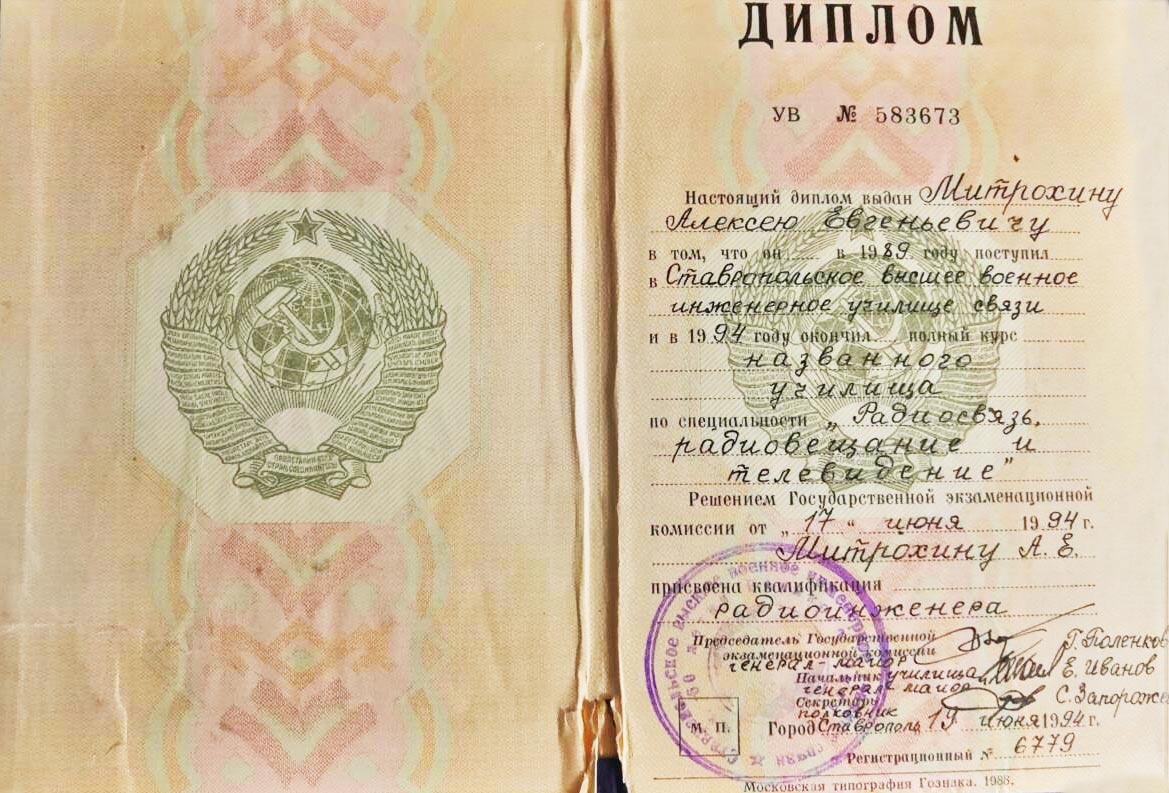 ДИПЛОМ
УВ № 583673
Настоящий диплом выдан Митрохину
Алексею Евгеньевичу
в том, что он в 1989 году поступил
в Ставропольское высшее военное
инженерное училище связи
и в 1994 году окончил полный курс
названного
училища
по специальности „Радиосвязь,
радиовещание и
телевидение"
Решением Государственной экзаменационной
комиссии от „17" июня 1994 г.
Митрохину А. Е.
присвоена квалификация
радиоинженера
Председатель Государственной
экзаменационной комиссии
генерал-майор Г. Поленков
Начальник училища
генерал майор Е. Иванов
Секретарь
полковник С. Запороже
М. П.
Город Ставрополь 19 июня 1994 г.
Регистрационный № 6779
Московская типография Гознака. 1988.